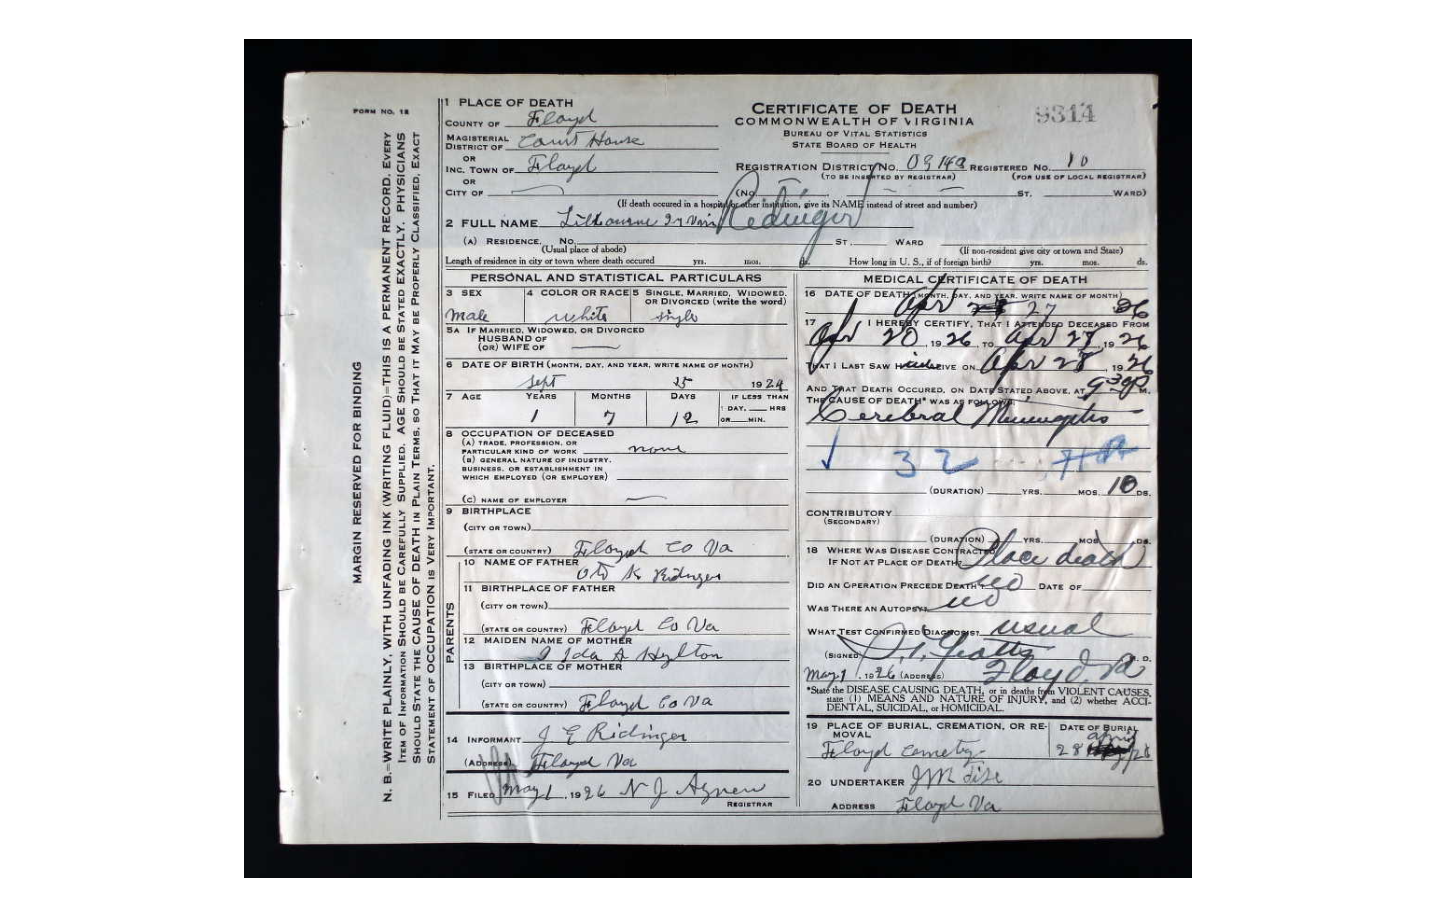 FORM NO. 12
MARGIN RESERVED FOR BINDING
N. B.—WRITE PLAINLY, WITH UNFADING INK (WRITING FLUID)—THIS IS A PERMANENT RECORD. EVERY
ITEM OF INFORMATION SHOULD BE CAREFULLY SUPPLIED. AGE SHOULD BE STATED EXACTLY. PHYSICIANS
SHOULD STATE THE CAUSE OF DEATH IN PLAIN TERMS, SO THAT IT MAY BE PROPERLY CLASSIFIED. EXACT
STATEMENT OF OCCUPATION IS VERY IMPORTANT.
1 PLACE OF DEATH
COUNTY OF Floyd
MAGISTERIAL DISTRICT OF Court House
OR
INC. TOWN OF Floyd
OR
CITY OF
CERTIFICATE OF DEATH
COMMONWEALTH OF VIRGINIA
BUREAU OF VITAL STATISTICS
STATE BOARD OF HEALTH
9314
REGISTRATION DISTRICT NO. REGISTERED NO. 10
(TO BE INSERTED BY REGISTRAR) (FOR USE OF LOCAL REGISTRAR)
(NO. ST. WARD)
(If death occured in a hospital or other institution, give its NAME instead of street and number)
2 FULL NAME Redinger
(A) RESIDENCE. No. ST. WARD
(Usual place of abode) (If non-resident give city or town and State)
Length of residence in city or town where death occured yrs. mos. ds. How long in U. S., if of foreign birth? yrs. mos. ds.
PERSONAL AND STATISTICAL PARTICULARS
3 SEX 4 COLOR OR RACE 5 SINGLE, MARRIED, WIDOWED, OR DIVORCED (write the word)
male white single
5A IF MARRIED, WIDOWED, OR DIVORCED
HUSBAND OF
(OR) WIFE OF
6 DATE OF BIRTH (MONTH, DAY, AND YEAR, WRITE NAME OF MONTH)
Sept 15 1924
7 AGE YEARS MONTHS DAYS IF LESS THAN
1 7 12 1 DAY, HRS
OR MIN.
8 OCCUPATION OF DECEASED
(A) TRADE, PROFESSION, OR
PARTICULAR KIND OF WORK none
(B) GENERAL NATURE OF INDUSTRY,
BUSINESS, OR ESTABLISHMENT IN
WHICH EMPLOYED (OR EMPLOYER)
(C) NAME OF EMPLOYER
9 BIRTHPLACE
(CITY OR TOWN)
(STATE OR COUNTRY) Floyd Co Va
PARENTS
10 NAME OF FATHER
K Ridinger
11 BIRTHPLACE OF FATHER
(CITY OR TOWN)
(STATE OR COUNTRY) Floyd Co Va
12 MAIDEN NAME OF MOTHER
Ida A Hylton
13 BIRTHPLACE OF MOTHER
(CITY OR TOWN)
(STATE OR COUNTRY) Floyd Co Va
14 INFORMANT J E Ridinger
(ADDRESS) Floyd Va
15 FILED May 1, 1926 N J Agnew
REGISTRAR
MEDICAL CERTIFICATE OF DEATH
16 DATE OF DEATH (MONTH, DAY, AND YEAR, WRITE NAME OF MONTH)
Apr 27 26
17 I HEREBY CERTIFY, THAT I ATTENDED DECEASED FROM
Apr 20, 1926, TO Apr 28, 1926
THAT I LAST SAW HIM ALIVE ON Apr 28, 1926
AND THAT DEATH OCCURED, ON DATE STATED ABOVE, AT 930P M.
THE CAUSE OF DEATH* WAS AS FOLLOWS:
Cerebral Meningitis
32
(DURATION) YRS. MOS. 10 DS.
CONTRIBUTORY
(SECONDARY)
(DURATION) YRS. MOS. DS.
18 WHERE WAS DISEASE CONTRACTED
IF NOT AT PLACE OF DEATH? Place death
DID AN OPERATION PRECEDE DEATH? no DATE OF
WAS THERE AN AUTOPSY? no
WHAT TEST CONFIRMED DIAGNOSIS? usual
(SIGNED) M. D.
May 1, 1926 (ADDRESS) Floyd, Va
*State the DISEASE CAUSING DEATH, or in deaths from VIOLENT CAUSES,
state (1) MEANS AND NATURE OF INJURY, and (2) whether ACCI-
DENTAL, SUICIDAL, or HOMICIDAL.
19 PLACE OF BURIAL, CREMATION, OR RE- MOVAL DATE OF BURIAL
Floyd Cemetry 28
20 UNDERTAKER
ADDRESS Floyd Va